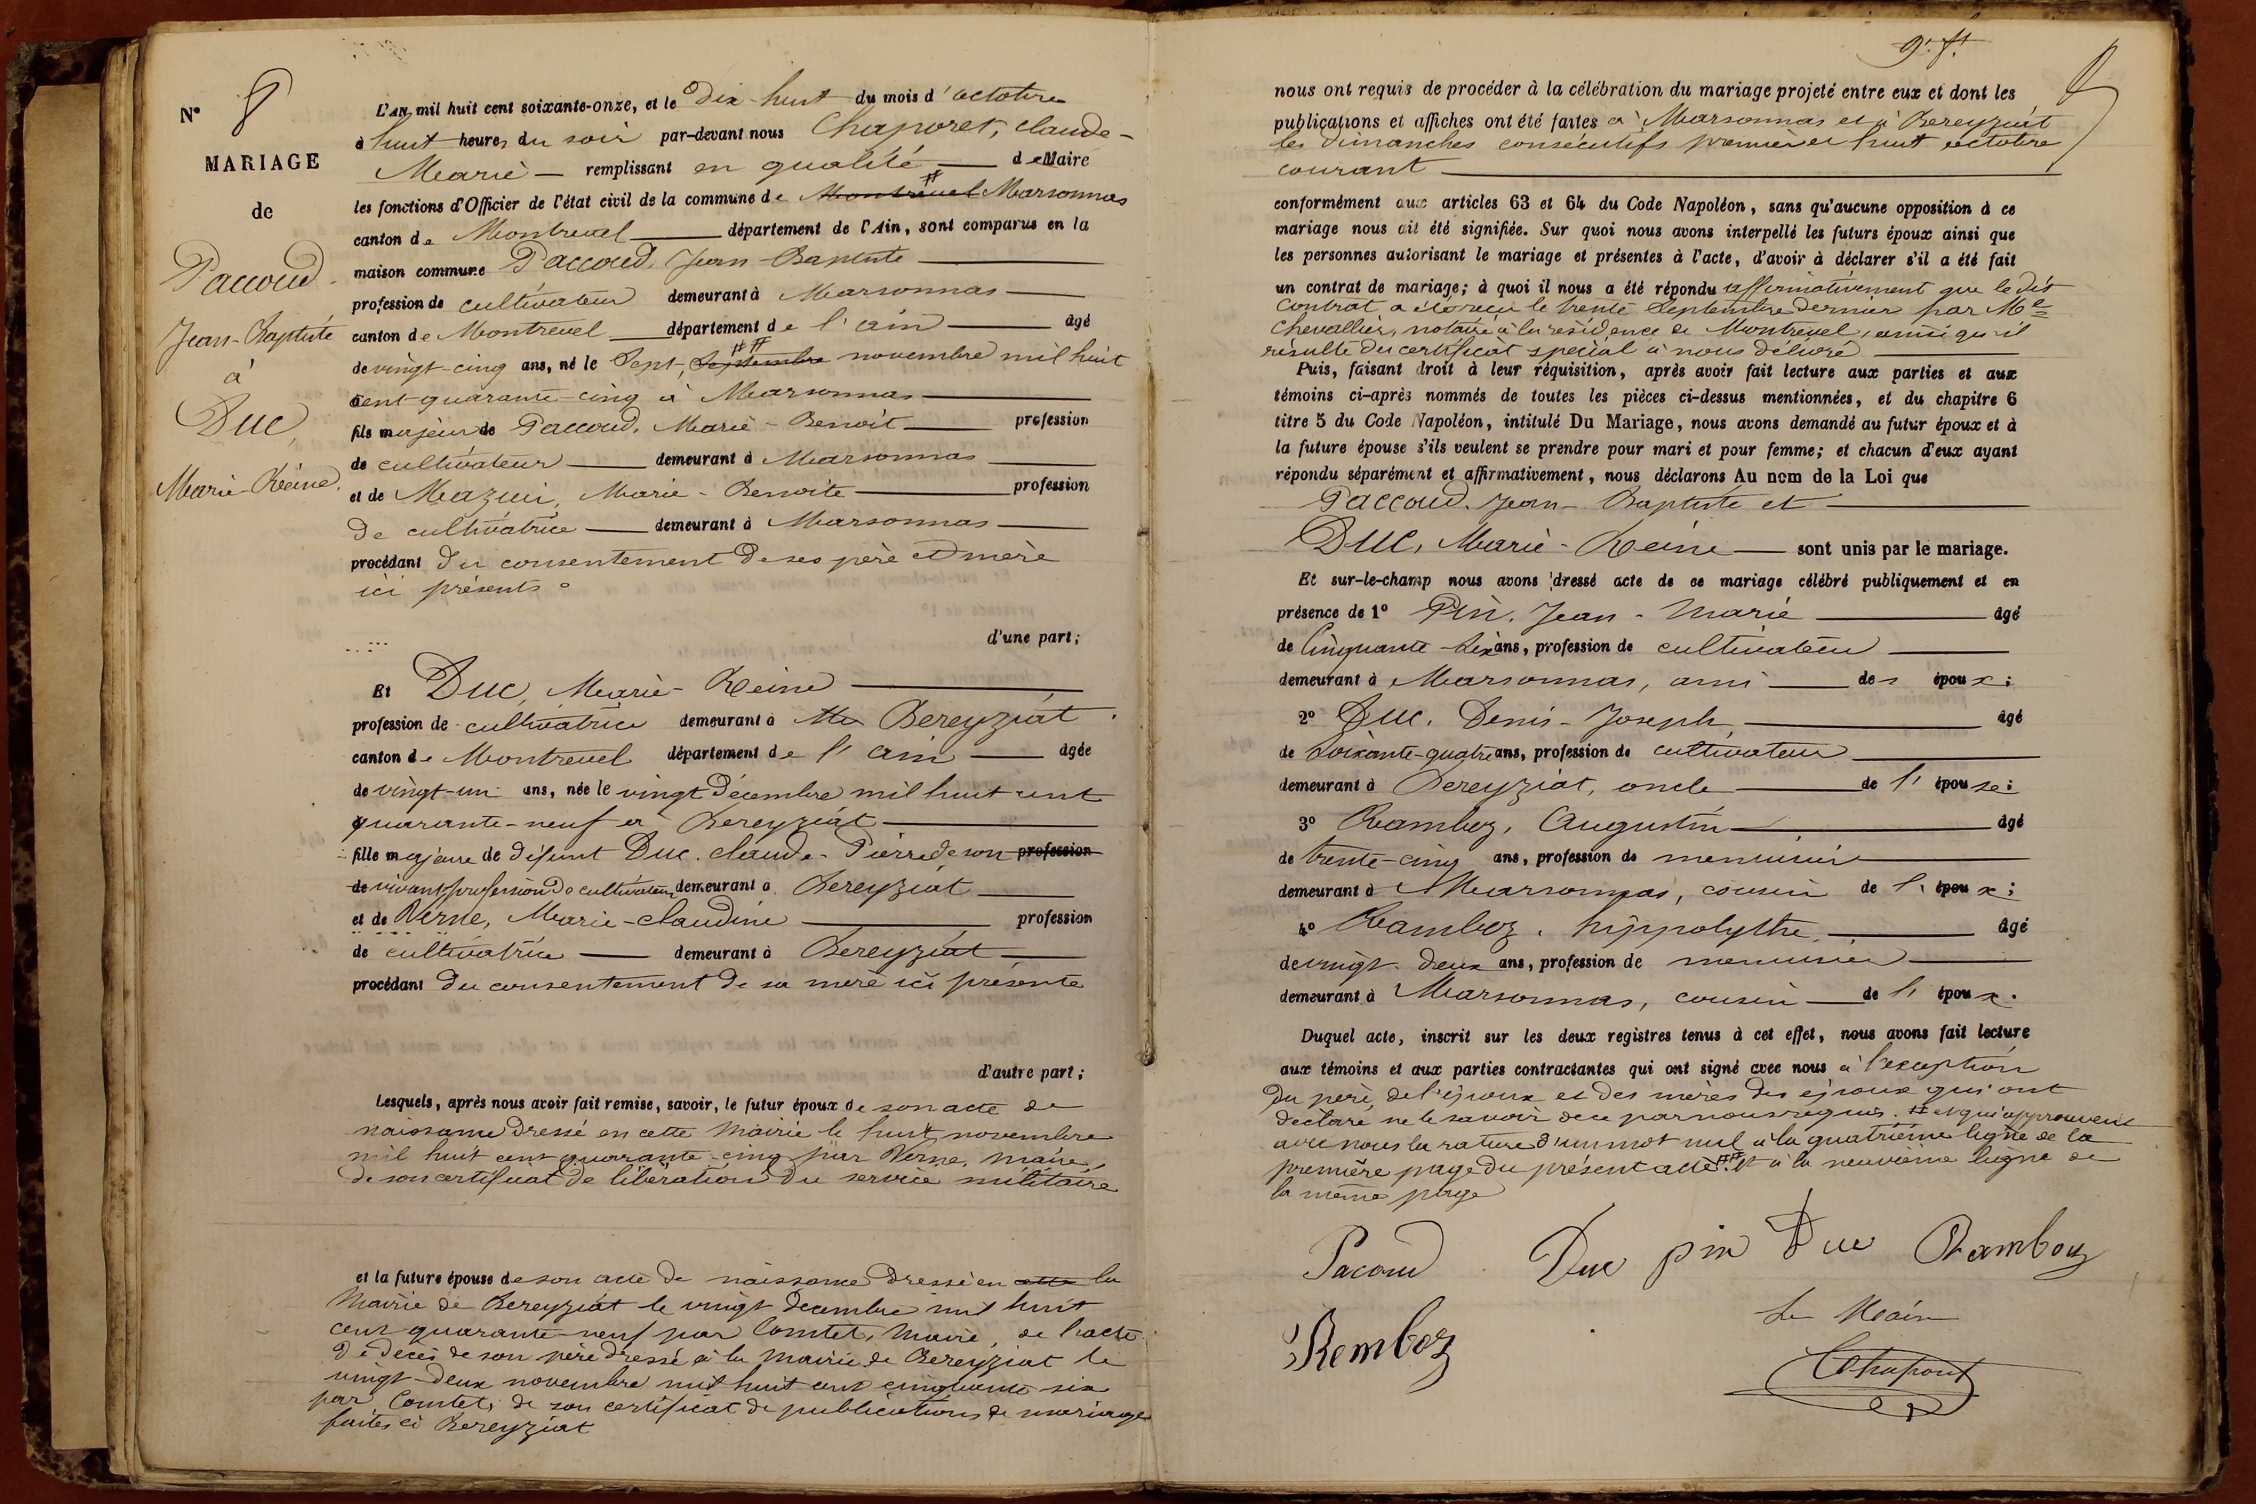 N° 8
MARIAGE
de
Paccoud
Jean-Baptiste
à
Duc,
Marie-Reine.
L'AN mil huit cent soixante-onze, et le Dix-huit du mois d'octobre
à huit heures du soir par-devant nous Chaporet, Claude-
Marie — remplissant en qualité — de Maire
les fonctions d'Officier de l'état civil de la commune de Montrevel # Marsonnas
canton de Montrevel département de l'Ain, sont comparus en la
maison commune Paccoud, Jean-Baptiste
profession de cultivateur demeurant à Marsonnas
canton de Montrevel département de l'ain âgé
de vingt-cinq ans, né le Sept, Septembre ## novembre mil huit
cent quarante-cinq à Marsonnas
fils majeur de Paccoud, Marie-Benoît profession
de cultivateur demeurant à Marsonnas
et de Mazuir, Marie-Benoite profession
de cultivatrice demeurant à Marsonnas
procédant du consentement de ses père et mère
ici présents
d'une part;
Et Duc, Marie-Reine
profession de cultivatrice demeurant à Ma Bereyziat
canton de Montrevel département de l'ain âgée
de vingt-un ans, née le vingt Décembre mil huit cent
quarante-neuf à Bereyziat
fille majeure de défunt Duc, Claude-Pierre de son profession
de vivant profession de cultivateur demeurant à Bereyziat
et de Verne, Marie-Claudine profession
de cultivatrice demeurant à Bereyziat
procédant du consentement de sa mère ici présente
d'autre part;
Lesquels, après nous avoir fait remise, savoir, le futur époux de son acte de
naissance dressé en cette Mairie le huit novembre
mil huit cent quarante-cinq par Verne, maire,
de son certificat de libération du service militaire
et la future épouse de son acte de naissance dressé en cette la
Mairie de Bereyziat le vingt décembre mil huit
cent quarante-neuf par Comtet, Maire, de l'acte
de décès de son père dressé à la Mairie de Bereyziat le
vingt-deux novembre mil huit cent cinquante-six
par Comtet, de son certificat de publications de mariage
faites à Bereyziat
9e ft
nous ont requis de procéder à la célébration du mariage projeté entre eux et dont les
publications et affiches ont été faites à Marsonnas et à Bereyziat
les dimanches consécutifs premier et huit octobre
courant
conformément aux articles 63 et 64 du Code Napoléon, sans qu'aucune opposition à ce
mariage nous ait été signifiée. Sur quoi nous avons interpellé les futurs époux ainsi que
les personnes autorisant le mariage et présentes à l'acte, d'avoir à déclarer s'il a été fait
un contrat de mariage; à quoi il nous a été répondu affirmativement que le dit
contrat a été reçu le trente Septembre dernier par Me
Chevallier, notaire à la résidence de Montrevel, ainsi qu'il
résulte du certificat spécial à nous délivré
Puis, faisant droit à leur réquisition, après avoir fait lecture aux parties et aux
témoins ci-après nommés de toutes les pièces ci-dessus mentionnées, et du chapitre 6
titre 5 du Code Napoléon, intitulé Du Mariage, nous avons demandé au futur époux et à
la future épouse s'ils veulent se prendre pour mari et pour femme; et chacun d'eux ayant
répondu séparément et affirmativement, nous déclarons Au nom de la Loi que
Paccoud, Jean-Baptiste et
Duc, Marie-Reine — sont unis par le mariage.
Et sur-le-champ nous avons dressé acte de ce mariage célébré publiquement et en
présence de 1° Pin, Jean-Marie âgé
de Cinquante-six ans, profession de cultivateur
demeurant à Marsonnas, ami des époux;
2° Duc, Denis-Joseph âgé
de Soixante-quatre ans, profession de cultivateur
demeurant à Bereyziat, oncle de l'épouse;
3° Ramboz, Augustin âgé
de trente-cinq ans, profession de menuisier
demeurant à Marsonnas, cousin de l'époux;
4° Ramboz, hippolythe âgé
de vingt-deux ans, profession de menuisier
demeurant à Marsonnas, cousin de l'époux.
Duquel acte, inscrit sur les deux registres tenus à cet effet, nous avons fait lecture
aux témoins et aux parties contractantes qui ont signé avec nous à l'exception
du père de l'époux et des mères des époux qui ont
déclaré ne le savoir de ce par nous requis. # et qui approuvent
avec nous la rature d'un mot nul à la quatrième ligne de la
première page du présent acte ## et à la neuvième ligne de
la même page
Pacoud Duc pin Duc Ramboz
Le Maire
Ramboz